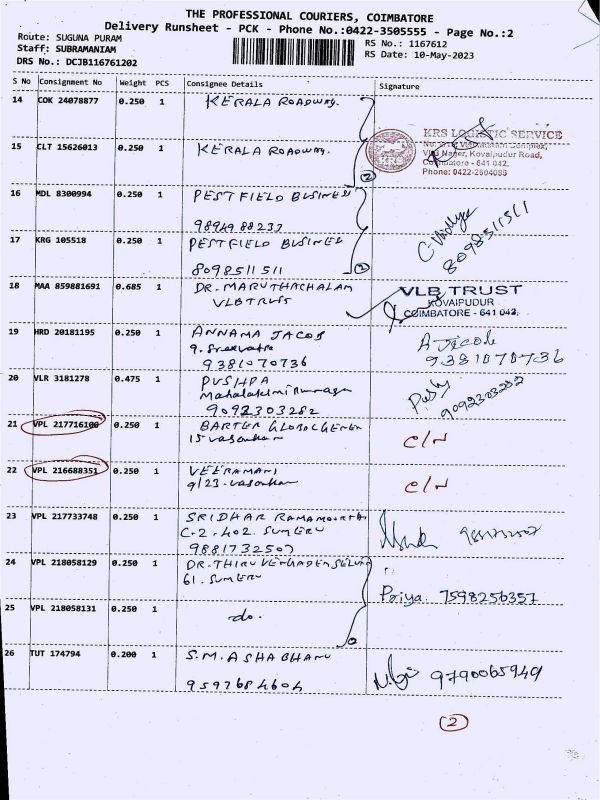 THE PROFESSIONAL COURIERS, COIMBATORE
Delivery Runsheet - PCK - Phone No.:0422-3505555 - Page No.:2
Route: SUGUNA PURAM
Staff: SUBRAMANIAM
DRS No.: DCJB116761202
RS No.: 1167612
RS Date: 10-May-2023
S No Consignment No Weight PCS Consignee Details Signature
14 COK 24078877 0.250 1 KERALA ROADWAY.
KRS LOGISTIC SERVICE
Kovaipudur Road,
Coimbatore - 641 042.
Phone: 0422-2604085
KRS
15 CLT 15626013 0.250 1 KERALA ROADWAY.
2
16 MDL 8300994 0.250 1 PESTFIELD BUSINES
9894988237
17 KRG 105518 0.250 1 PESTFIELD BUSINES
8098511511
2
8098511511
18 MAA 859881691 0.685 1 DR. MARUTHACHALAM
VLB TRUST
VLB TRUST
KOVAIPUDUR
COIMBATORE - 641 042.
19 HRD 20181195 0.250 1 ANNAMA JACOB
9381070736
A Jicob
9381070736
20 VLR 3181278 0.475 1 PUSHPA
9092303282
9092303282
21 VPL 217716100 0.250 1 BARTER
C/N
22 VPL 216688351 0.250 1 VEERAMANI
9/23.
C/N
23 VPL 217733748 0.250 1 SRIDHAR
C-2-402. SUMERU
9881732507
24 VPL 218058129 0.250 1 DR. THIRU
61. SUMERU
Priya. 7598256357
25 VPL 218058131 0.250 1 do.
2
26 TUT 174794 0.200 1 S.M. ASHA BHANU
9597684604
9790065949
2